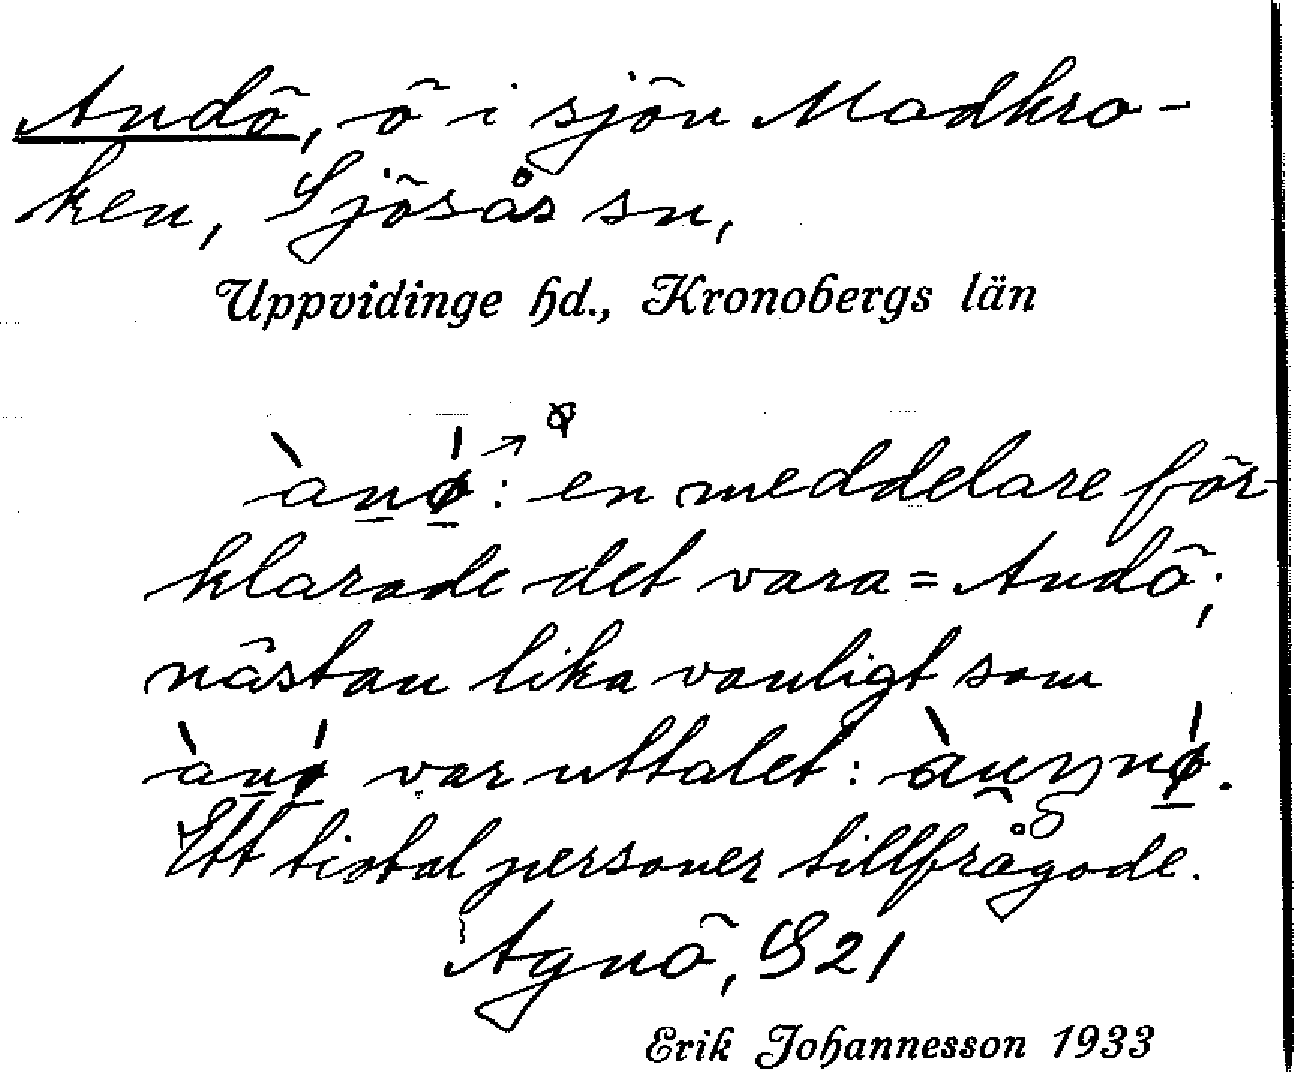 Andö, ö i sjön Madkro-
ken, Sjösås sn,
Uppvidinge hd., Kronobergs län
ànø: en meddelare för-
klarade det vara = Andö;
nästan lika vanligt som
ànø var uttalet:
Ett tiotal personer tillfrågade.
Agnö, S21
Erik Johannesson 1933